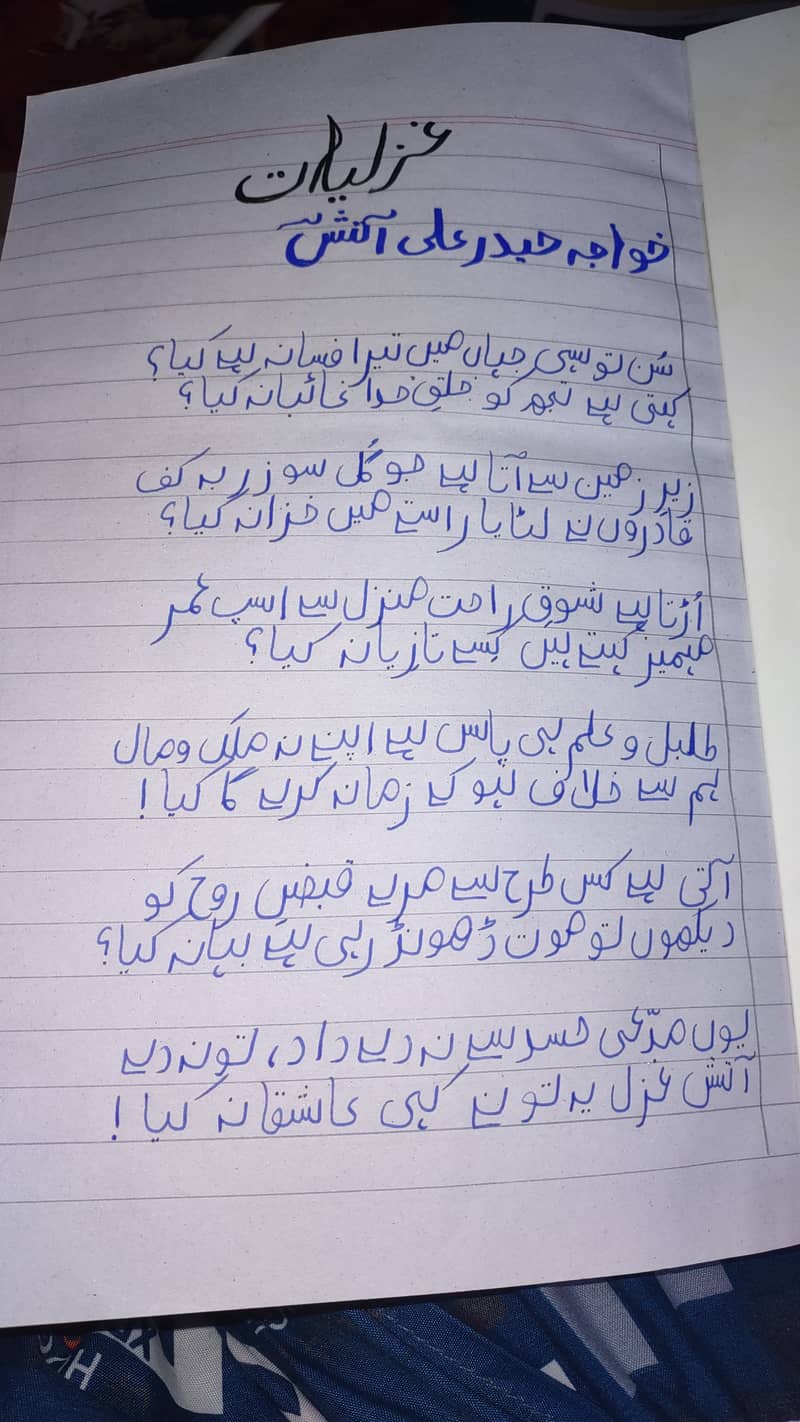 غزلیات
خواجہ حیدر علی آتش
سُن تو سہی جہاں میں تیرا فسانہ ہے کیا؟
کہتی ہے تجھ کو خلقِ خدا غائبانہ کیا؟
زیر زمین سے آتا ہے جو گُل سو زر بہ کف
قادروں نے لٹایا راستے میں خزانہ کیا؟
اُڑتا ہے شوق راحت منزل سے اسپ عمر
مہمیز کہتے ہیں کِسے تازیانہ کیا؟
طلبل و علم ہی پاس ہے اپنے نہ ملک و مال
ہم سے خلاف ہو کے زمانہ کرے گا کیا!
آتی ہے کس طرح سے مرے قبضِ روح کو
دیکھوں تو موت ڈھونڈ رہی ہے بہانہ کیا؟
یوں مدّعی حسد سے نہ دے داد، تو نہ دے
آتش غزل یہ تو نے کہی عاشقانہ کیا!